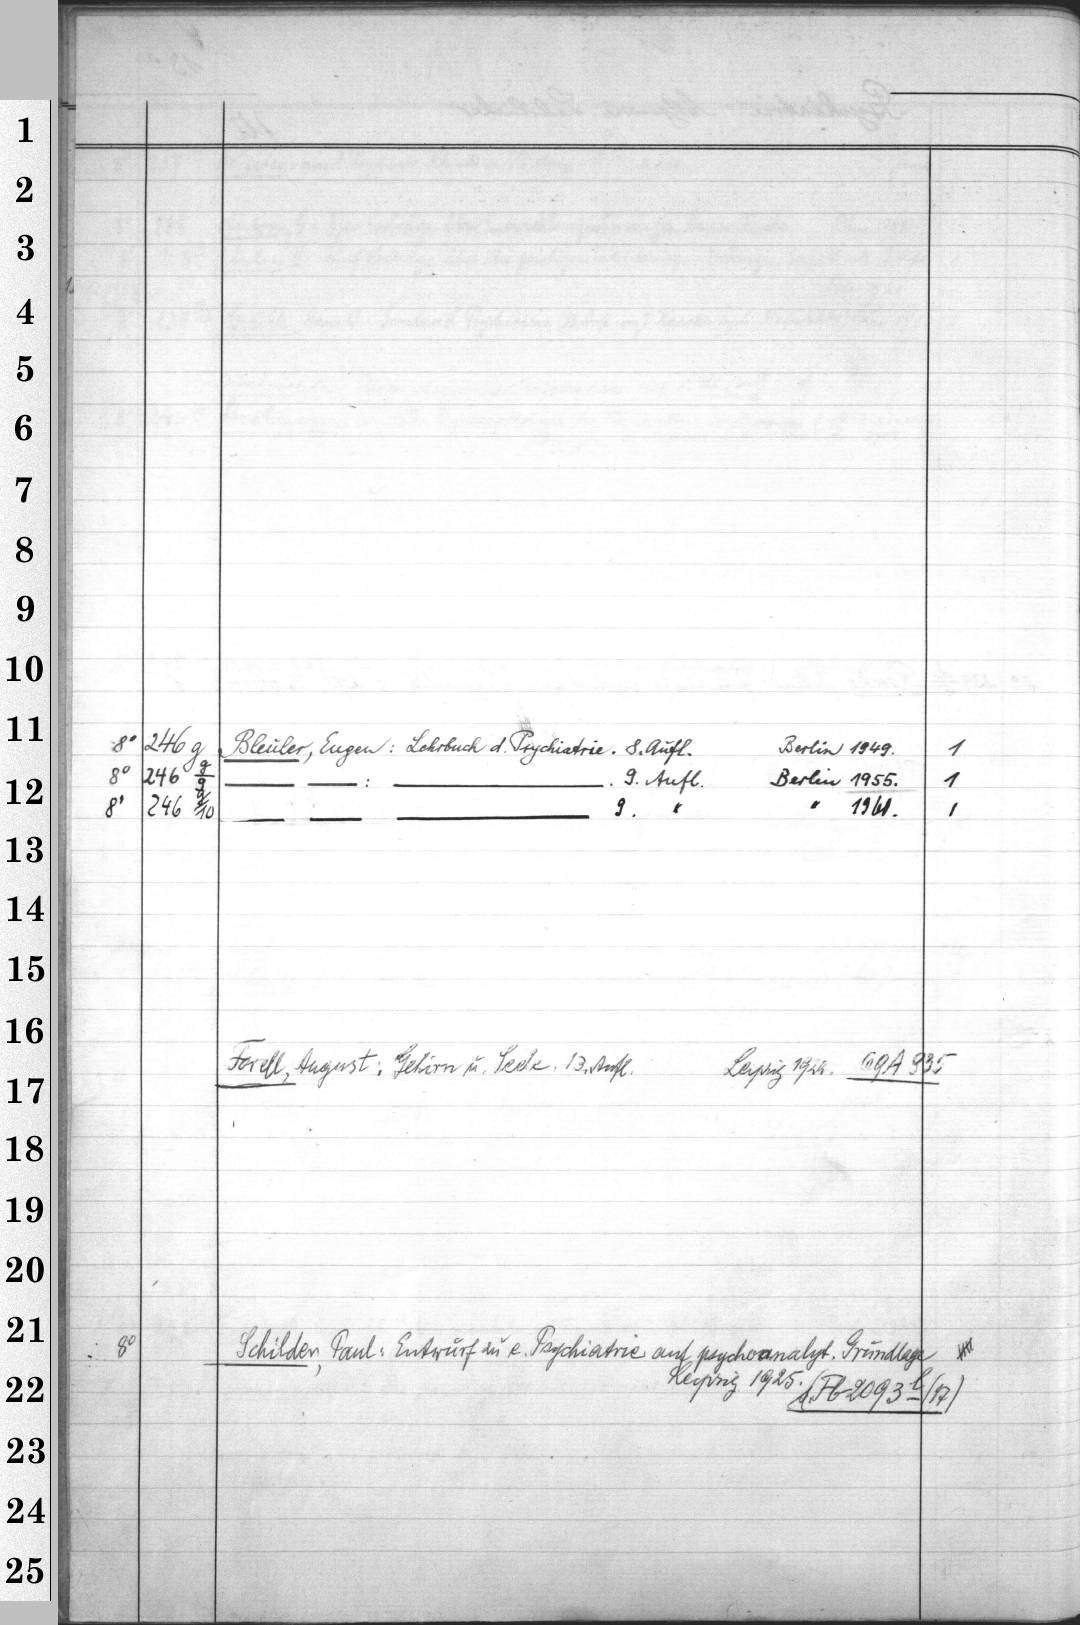 1
2
3
4
5
6
7
8
9
10
11
8° 246 g Bleuler, Eugen: Lehrbuch d. Psychiatrie. 8. Aufl. Berlin 1949. 1
8° 246 g/9 — — : — . 9. Aufl. Berlin 1955. 1
12
8° 246 g/10 — — — 9. " " 1961. 1
13
14
15
16
Forell, August: Gehirn u. Seele. 13. Aufl. Leipzig 1922. 99A 935
17
18
19
20
21
8° Schilder, Paul: Entwurf zu e. Psychiatrie auf psychoanalyt. Grundlage
22
Leipzig 1925. s. Fb 2093 b (17)
23
24
25